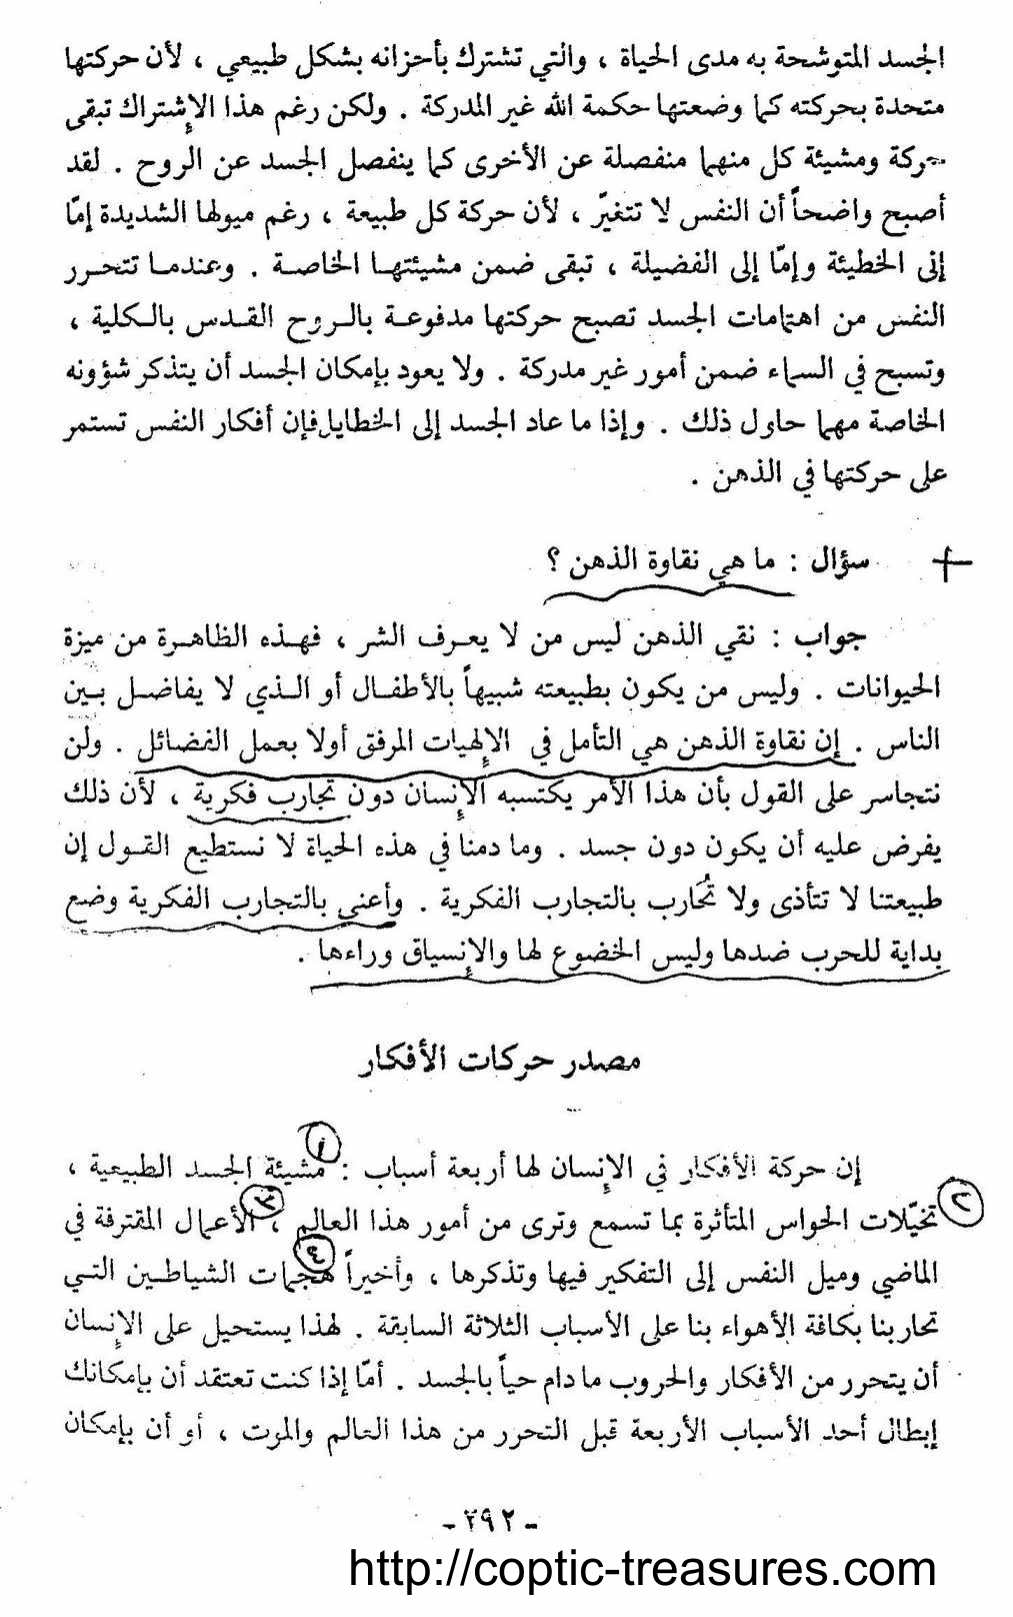 الجسد المتوشحة به مدى الحياة ، والتي تشترك بأحزانه بشكل طبيعي ، لأن حركتها
متحدة بحركته كما وضعتها حكمة الله غير المدركة . ولكن رغم هذا الإشتراك تبقى
حركة ومشيئة كل منهما منفصلة عن الأخرى كما ينفصل الجسد عن الروح . لقد
أصبح واضحاً أن النفس لا تتغيّر ، لأن حركة كل طبيعة ، رغم ميولها الشديدة إمّا
إلى الخطيئة وإمّا إلى الفضيلة ، تبقى ضمن مشيئتها الخاصة . وعندما تتحرر
النفس من اهتمامات الجسد تصبح حركتها مدفوعة بالروح القدس بالكلية ،
وتسبح في السماء ضمن أمور غير مدركة . ولا يعود بإمكان الجسد أن يتذكر شؤونه
الخاصة مهما حاول ذلك . وإذا ما عاد الجسد إلى الخطايا فإن أفكار النفس تستمر
على حركتها في الذهن .
سؤال : ما هي نقاوة الذهن ؟
جواب : نقي الذهن ليس من لا يعرف الشر ، فهذه الظاهرة من ميزة
الحيوانات . وليس من يكون بطبيعته شبيهاً بالأطفال أو الذي لا يفاضل بين
الناس . إن نقاوة الذهن هي التأمل في الإلهيات المرفق أولا بعمل الفضائل . ولن
نتجاسر على القول بأن هذا الأمر يكتسبه الإنسان دون تجارب فكرية ، لأن ذلك
يفرض عليه أن يكون دون جسد . وما دمنا في هذه الحياة لا نستطيع القول إن
طبيعتنا لا تتأذى ولا تُحارب بالتجارب الفكرية . وأعني بالتجارب الفكرية وضع
بداية للحرب ضدها وليس الخضوع لها والإنسياق وراءها .
مصدر حركات الأفكار
إن حركة الأفكار في الإنسان لها أربعة أسباب : ١ مشيئة الجسد الطبيعية ،
٢ تخيّلات الحواس المتأثرة بما تسمع وترى من أمور هذا العالم ، ٣ الأعمال المقترفة في
الماضي وميل النفس إلى التفكير فيها وتذكرها ، وأخيراً ٤ هجمات الشياطين التي
تحاربنا بكافة الأهواء بنا على الأسباب الثلاثة السابقة . لهذا يستحيل على الإنسان
أن يتحرر من الأفكار والحروب ما دام حياً بالجسد . أمّا إذا كنت تعتقد أن بإمكانك
إبطال أحد الأسباب الأربعة قبل التحرر من هذا العالم والموت ، أو أن بإمكان
- ٢٩٢ -
http://coptic-treasures.com